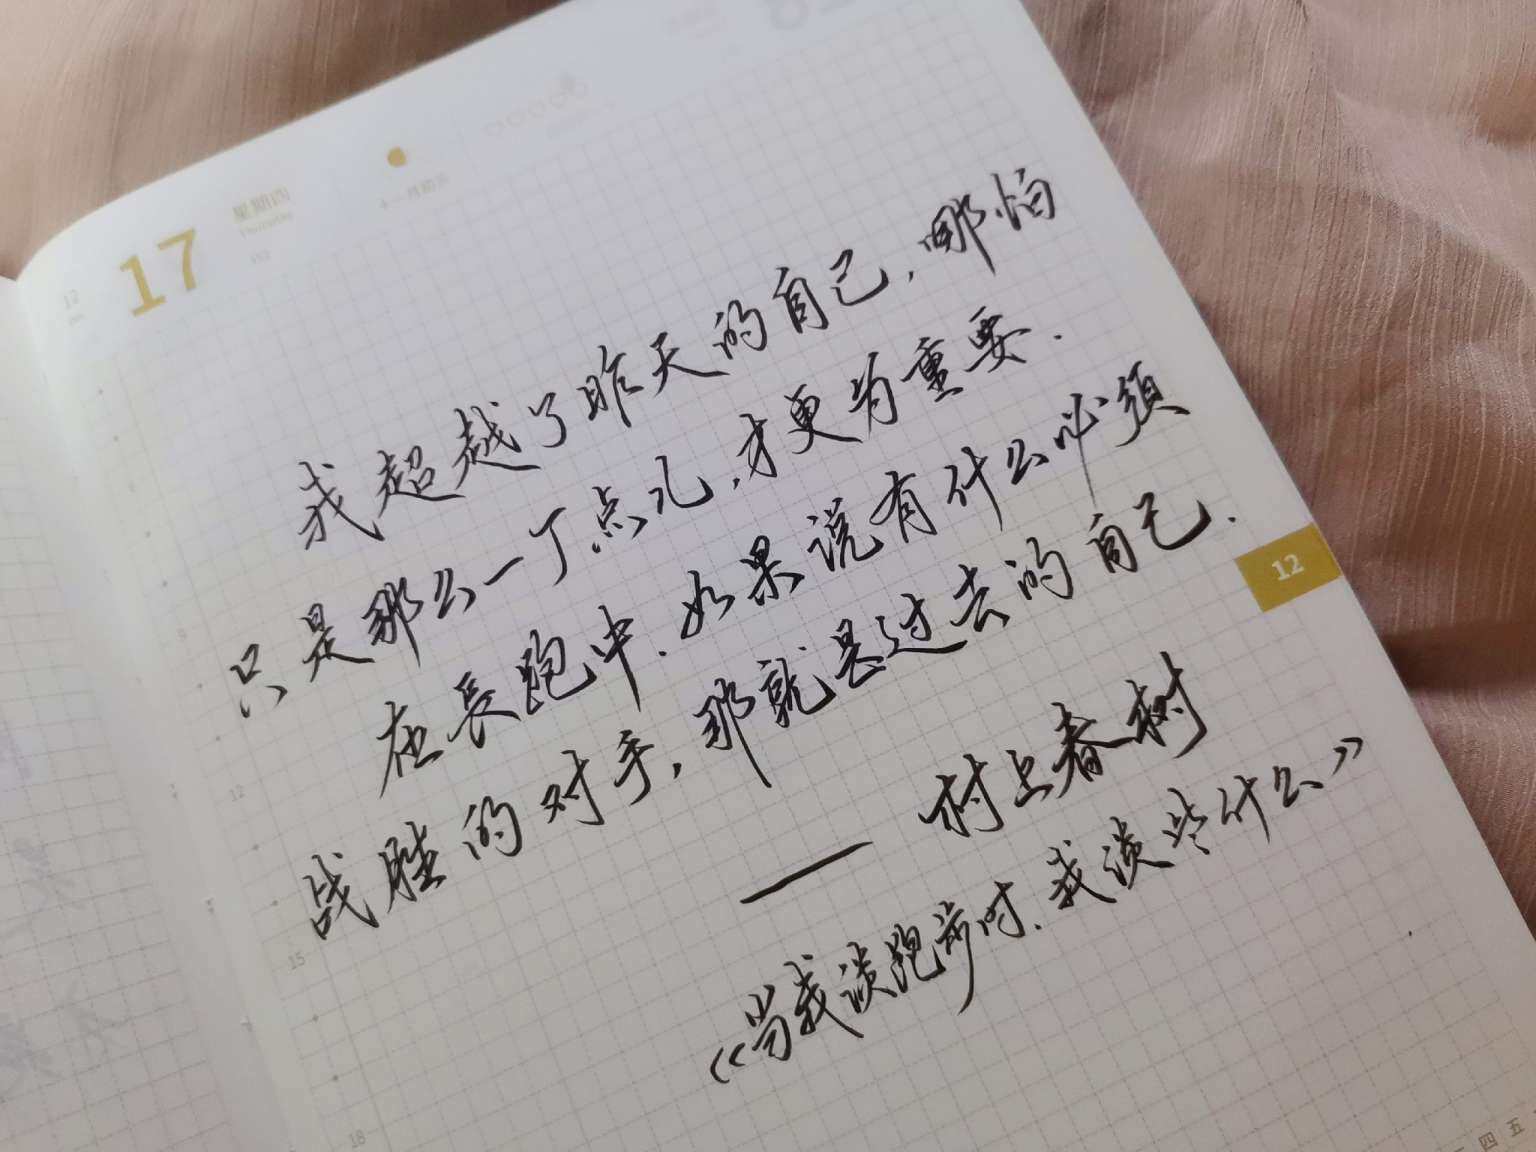 17 星期四
Thursday
12
我超越了昨天的自己，哪怕
只是那么一丁点儿，才更为重要.
在長跑中.如果说有什么必须
9
战胜的对手，那就是过去的自己.
12
12
—— 村上春樹
15
《当我谈跑步时.我谈些什么》
18
四 五